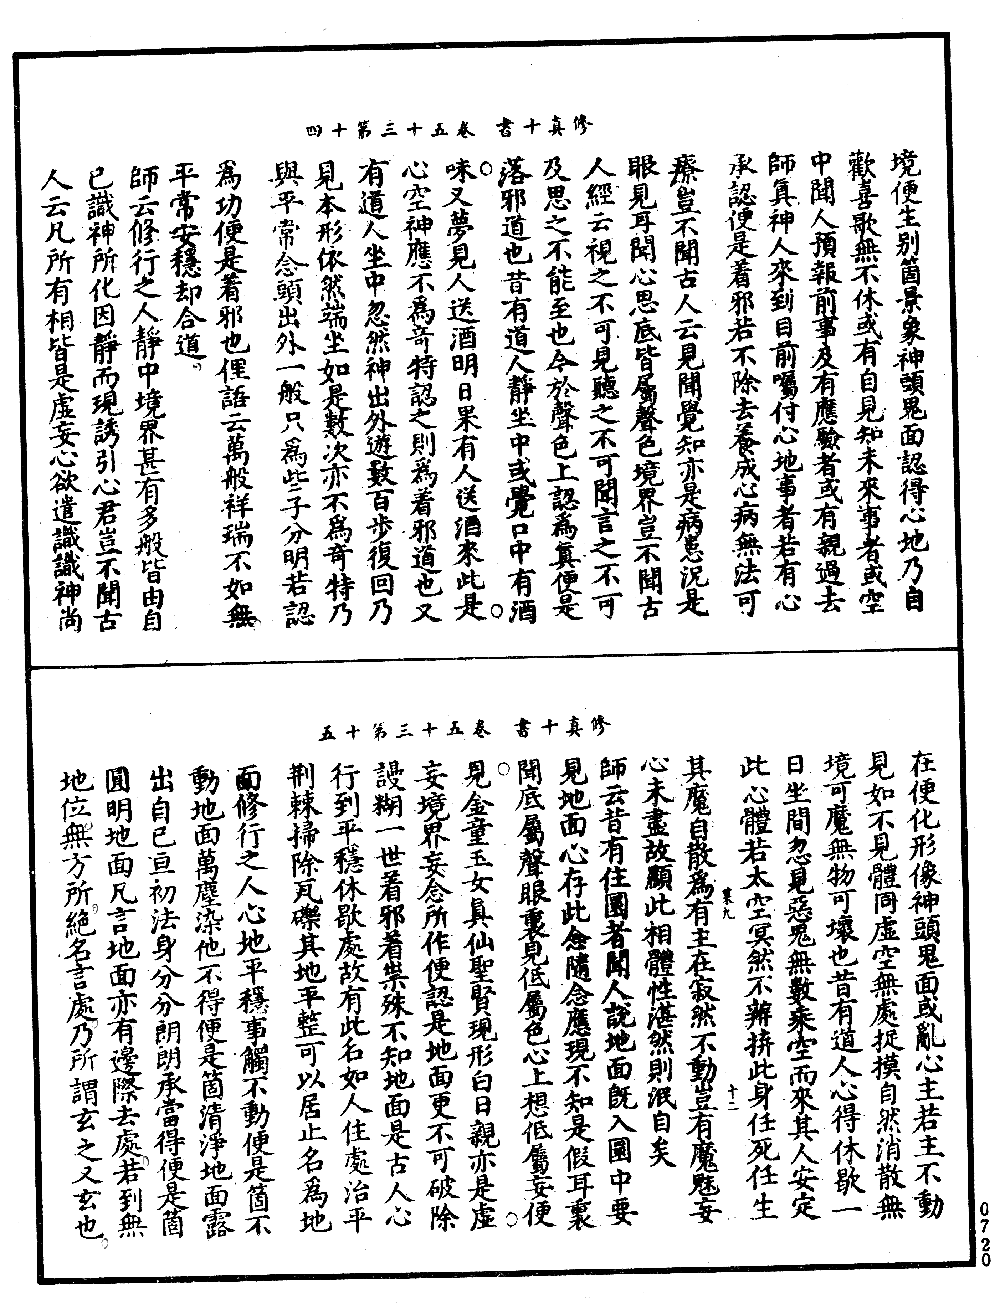 修真十書　卷五十三第十四
境便生別箇景象神頭鬼面認得心地乃自
歡喜歌無不休或有自見知未來事者或空
中聞人預報前事及有應驗者或有親過去
師真神人來到目前囑付心地事者若有心
承認便是着邪若不除去養成心病無法可
療豈不聞古人云見聞覺知亦是病患況是
眼見耳聞心思底皆屬聲色境界豈不聞古
人經云視之不可見聽之不可聞言之不可
及思之不能至也今於聲色上認為真便是
落邪道也昔有道人靜坐中或覺口中有酒
味又夢見人送酒明日果有人送酒來此是
心空神應不為奇特認之則為着邪道也又
有道人坐中忽然神出外遊數百步復回乃
見本形依然端坐如是數次亦不為奇特乃
與平常念頭出外一般只為些子分明若認
為功便是着邪也俚語云萬般祥瑞不如無
平常安穩却合道
師云修行之人靜中境界甚有多般皆由自
己識神所化因靜而現誘引心君豈不聞古
人云凡所有相皆是虛妄心欲遣識識神尚
修真十書　卷五十三第十五
在便化形像神頭鬼面或亂心主若主不動
見如不見體同虛空無處捉摸自然消散無
境可魔無物可壞也昔有道人心得休歇一
日坐間忽見惡鬼無數乘空而來其人安定
此心體若太空冥然不辨拚此身任死任生
其魔自散為有主在寂然不動豈有魔魅妄
心未盡故顯此相體性湛然則泯自矣
師云昔有住圜者聞人說地面既入圜中要
見地面心存此念隨念應現不知是假耳裏
聞底屬聲眼裏見低屬色心上想低屬妄便
見金童玉女真仙聖賢現形白日親亦是虛
妄境界妄念所作便認是地面更不可破除
謾糊一世着邪着祟殊不知地面是古人心
行到平穩休歇處故有此名如人住處治平
荆棘掃除瓦礫其地平整可以居止名為地
面修行之人心地平穩事觸不動便是箇不
動地面萬塵染他不得便是箇清淨地面露
出自己亘初法身分分朗朗承當得便是箇
圓明地面凡言地面亦有邊際去處若到無
地位無方所絕名言處乃所謂玄之又玄也
0720